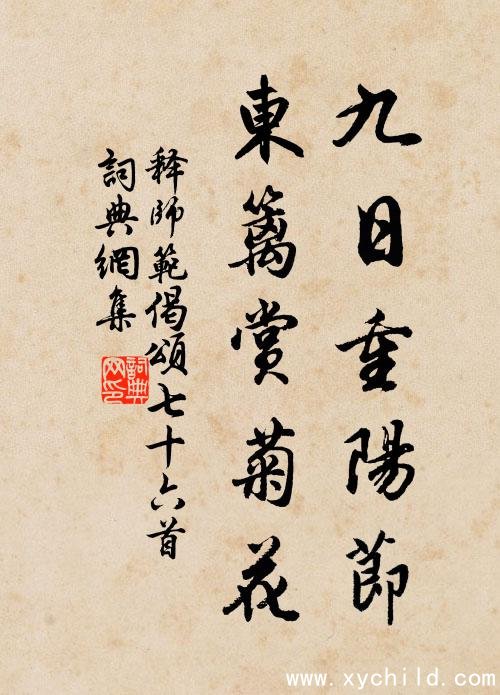 九日重陽節
東籬賞菊花
释師範偈頌七十六首
詞典網集
詞典
网印
www.xychild.com